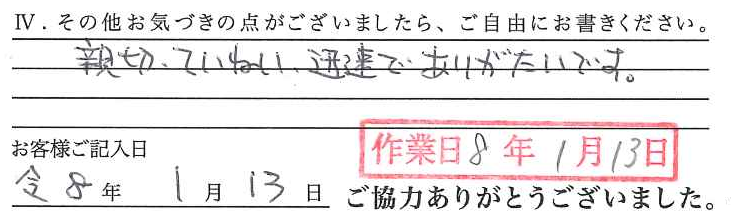 Ⅳ．その他お気づきの点がございましたら、ご自由にお書きください。
親切、ていねい、迅速でありがたいです。
お客様ご記入日
作業日8年1月13日
令8年1月13日
ご協力ありがとうございました。